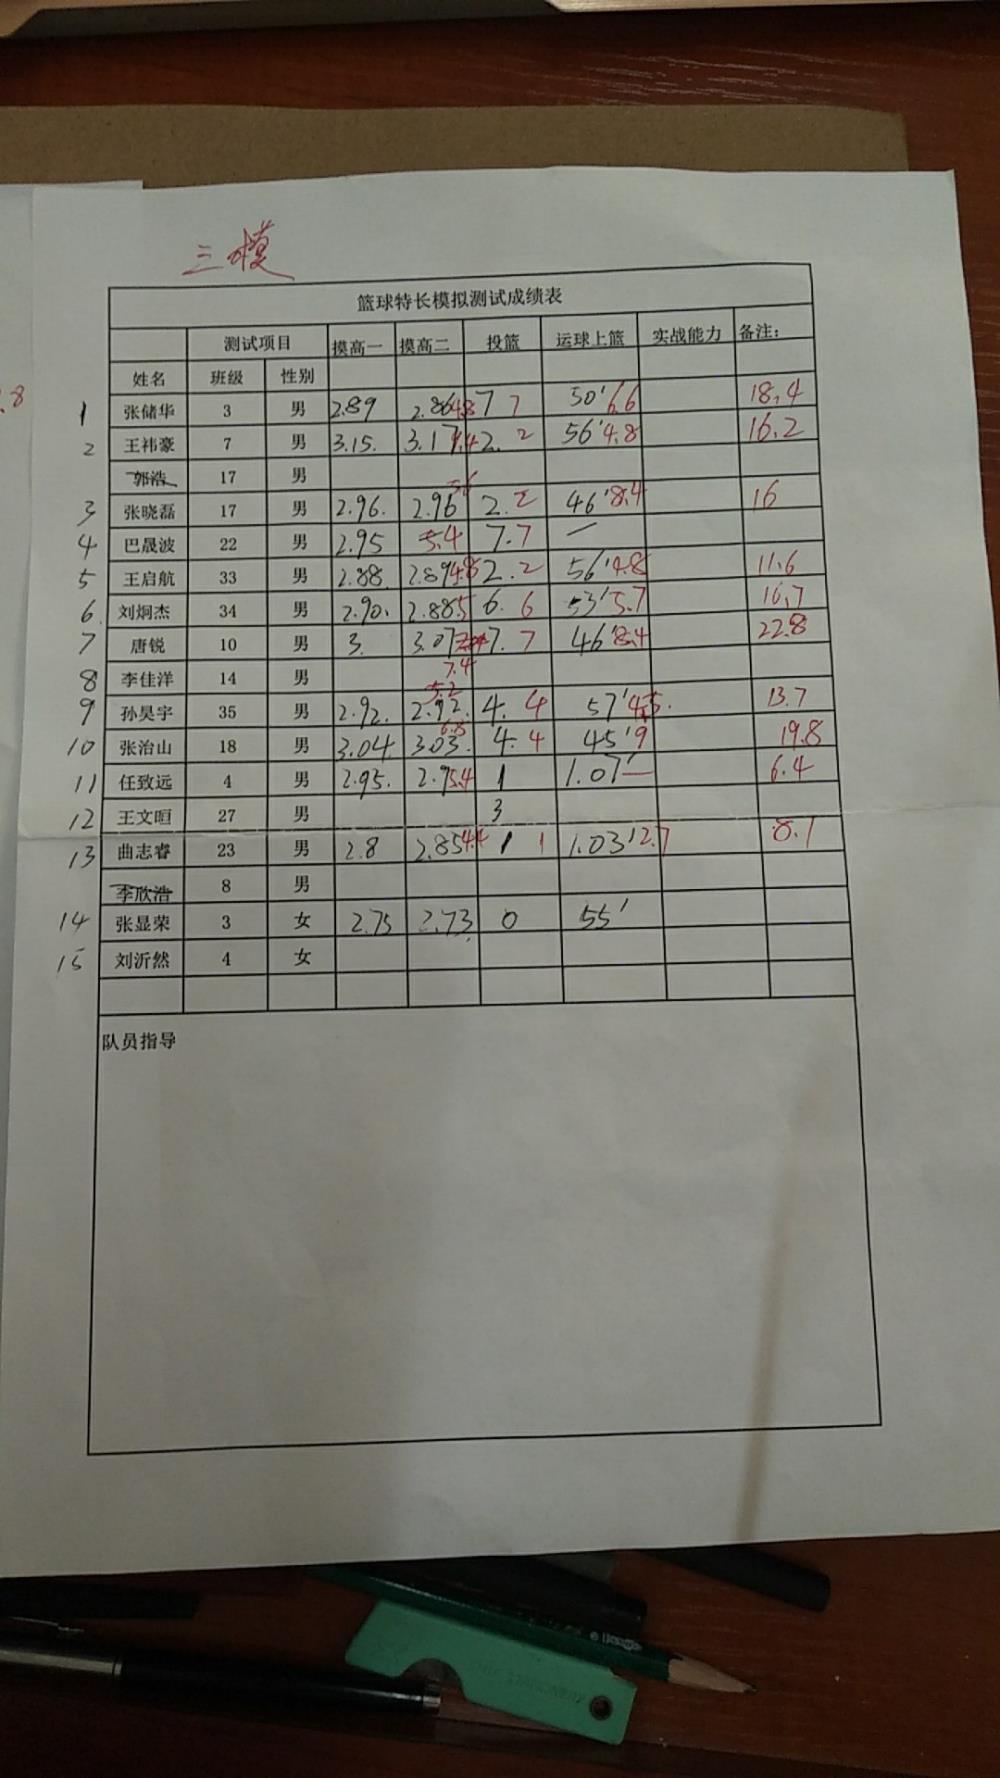 .8
三模
篮球特长模拟测试成绩表
测试项目 摸高一 摸高二 投篮 运球上篮 实战能力 备注：
姓名 班级 性别
1 张储华 3 男 2.89 2.86 4.8 7 7 50' 6.6 18.4
2 王祎豪 7 男 3.15. 3.17 9.4 2. 2 56' 4.8 16.2
郭浩 17 男
3 张晓磊 17 男 2.96. 2.96 5.6 2. 2 46' 8.4 16
4 巴晟波 22 男 2.95 5.4 7. 7 —
5 王启航 33 男 2.88 2.89 4.8 2. 2 56' 4.8 11.6
6. 刘炯杰 34 男 2.90. 2.88 5 6. 6 53' 5.7 16.7
7 唐锐 10 男 3. 3.07 7.4 7. 7 46' 8.4 22.8
8 李佳洋 14 男
9 孙昊宇 35 男 2.92. 2.92. 5.2 4. 4 57' 4.5. 13.7
10 张治山 18 男 3.04 3.03. 6.8 4. 4 45' 9 19.8
11 任致远 4 男 2.95. 2.95.4 1 1.07' — 6.4
12 王文晅 27 男 3
13 曲志睿 23 男 2.8 2.85 4.4 1 1 1.03' 2.7 8.1
李欣浩 8 男
14 张显荣 3 女 2.75 2.73. 0 55'
15 刘沂然 4 女
队员指导